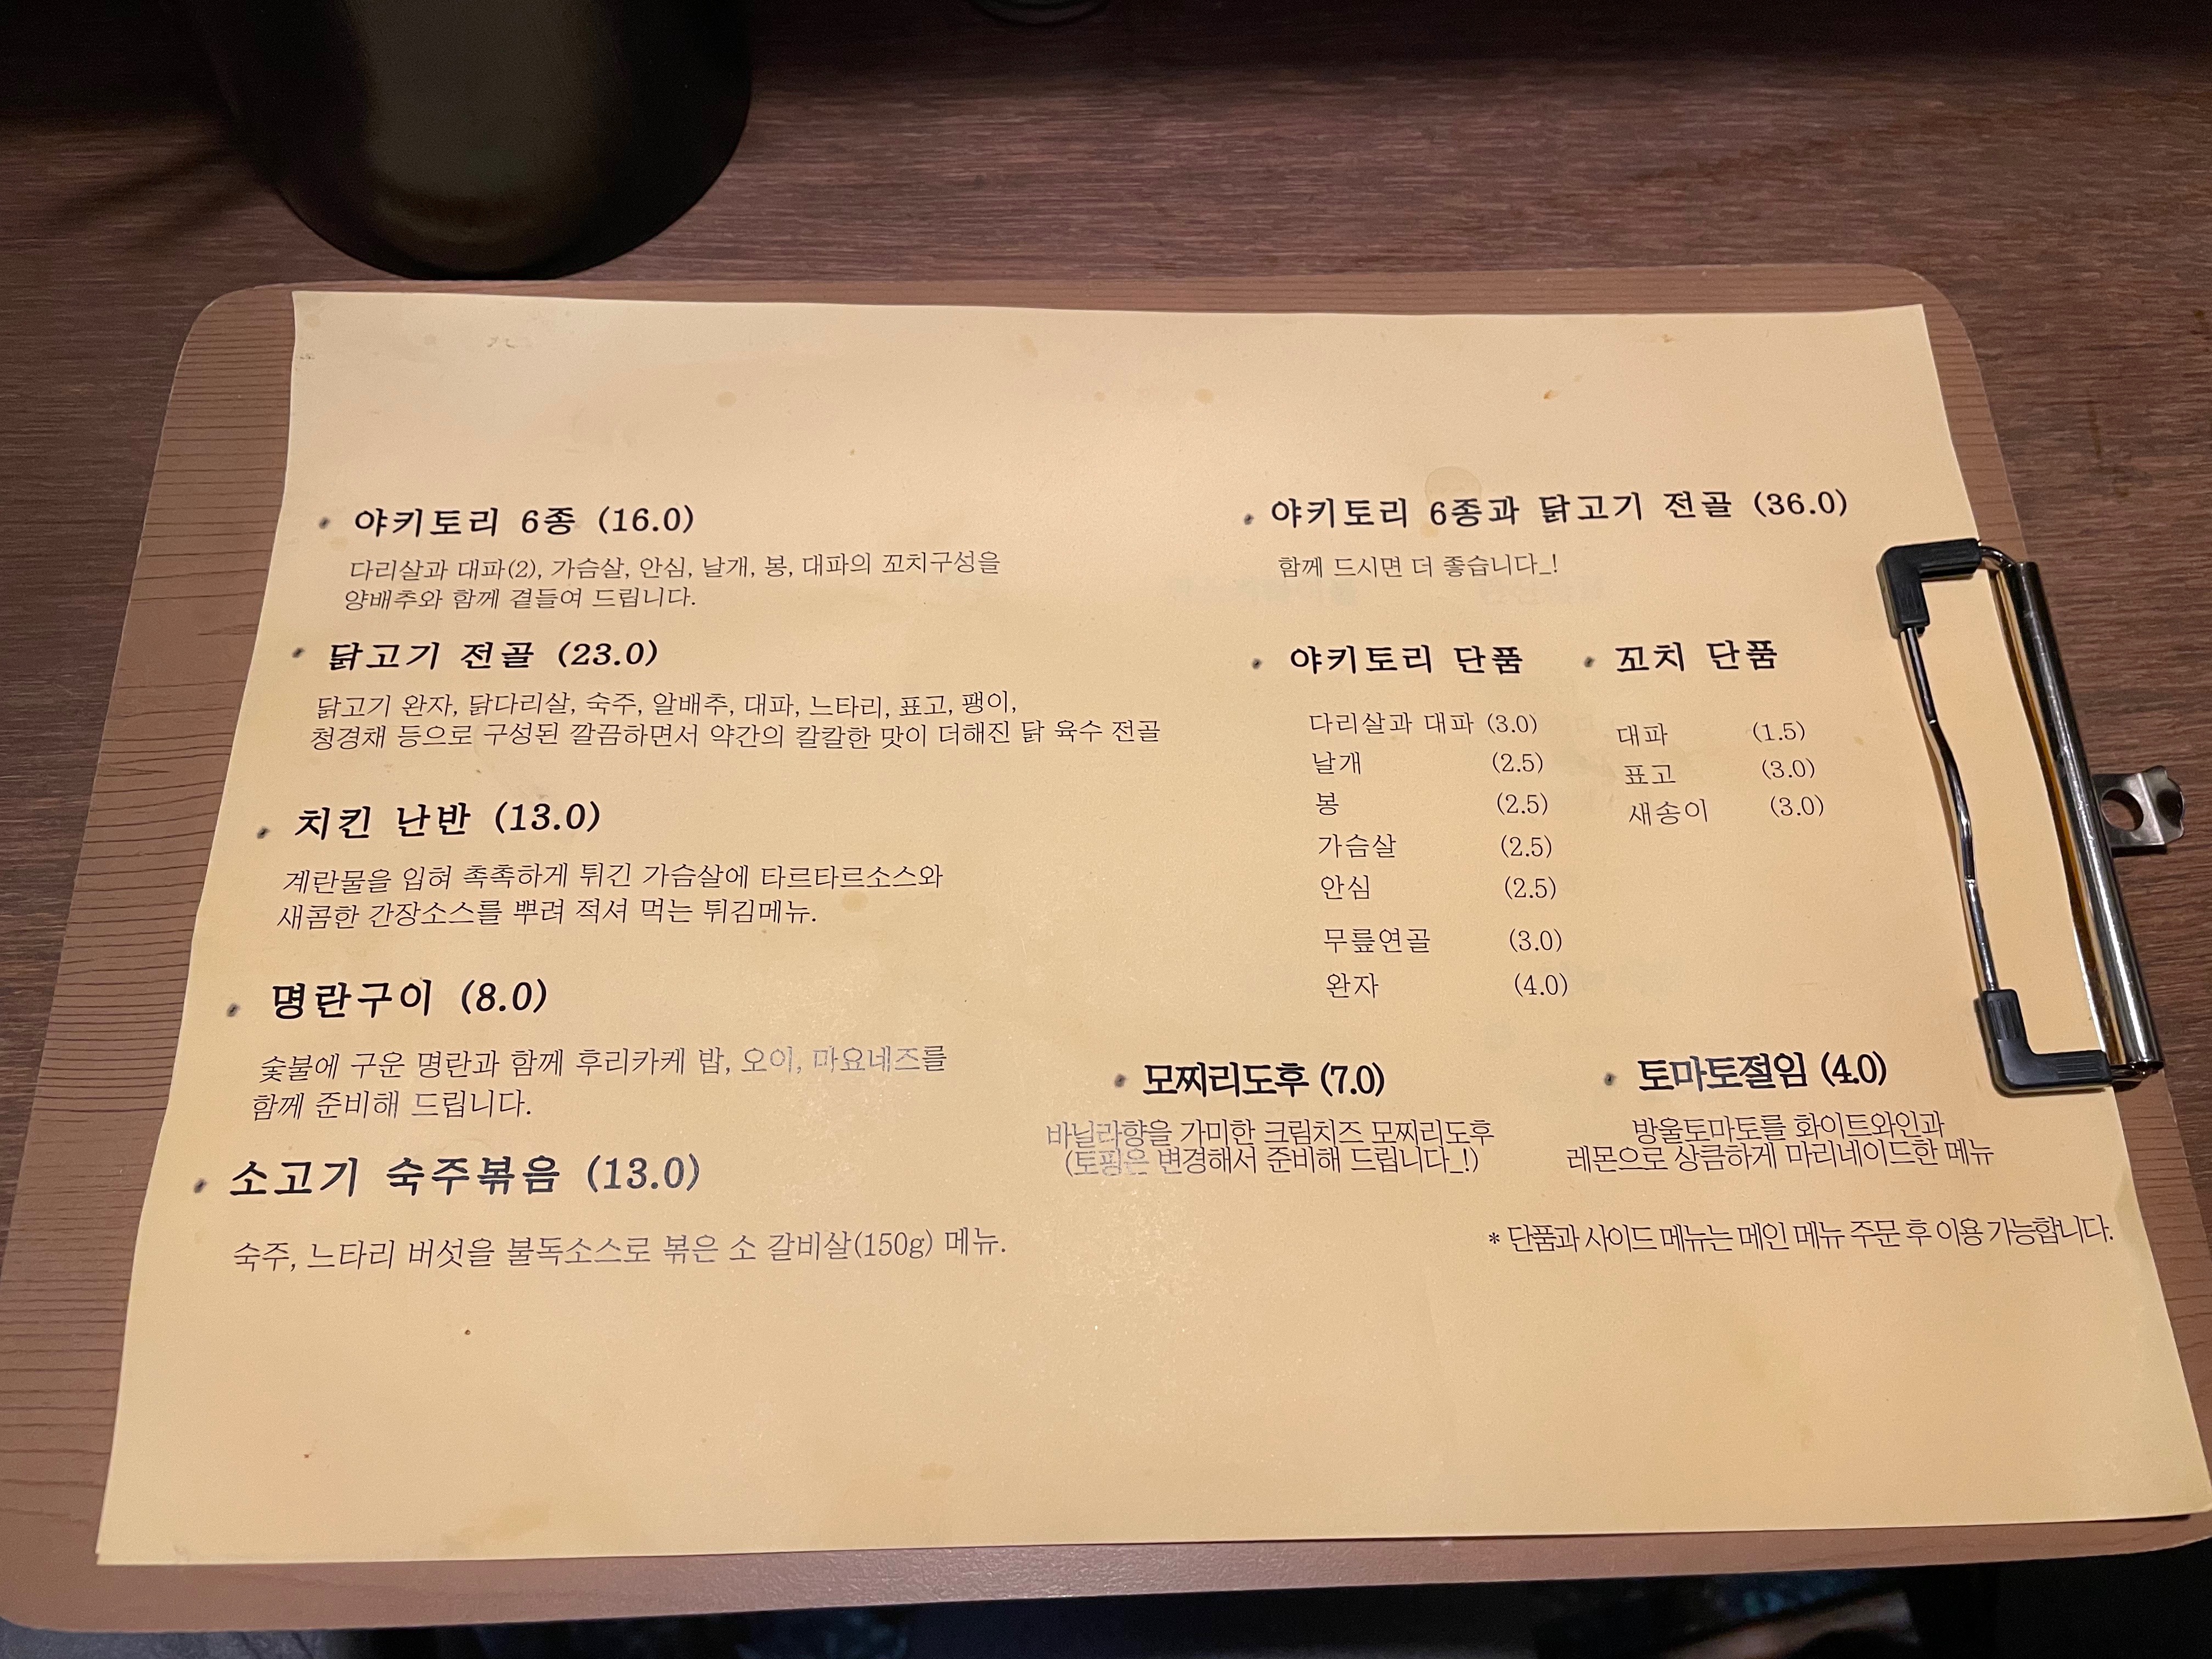 야키토리 6종 (16.0)
다리살과 대파(2), 가슴살, 안심, 날개, 봉, 대파의 꼬치구성을
양배추와 함께 곁들여 드립니다.
닭고기 전골 (23.0)
닭고기 완자, 닭다리살, 숙주, 알배추, 대파, 느타리, 표고, 팽이,
청경채 등으로 구성된 깔끔하면서 약간의 칼칼한 맛이 더해진 닭 육수 전골
치킨 난반 (13.0)
계란물을 입혀 촉촉하게 튀긴 가슴살에 타르타르소스와
새콤한 간장소스를 뿌려 적셔 먹는 튀김메뉴.
명란구이 (8.0)
숯불에 구운 명란과 함께 후리카케 밥, 오이, 마요네즈를
함께 준비해 드립니다.
소고기 숙주볶음 (13.0)
숙주, 느타리 버섯을 불독소스로 볶은 소 갈비살(150g) 메뉴.
야키토리 6종과 닭고기 전골 (36.0)
함께 드시면 더 좋습니다_!
야키토리 단품
다리살과 대파 (3.0)
날개 (2.5)
봉 (2.5)
가슴살 (2.5)
안심 (2.5)
무릎연골 (3.0)
완자 (4.0)
꼬치 단품
대파 (1.5)
표고 (3.0)
새송이 (3.0)
모찌리도후 (7.0)
바닐라향을 가미한 크림치즈 모찌리도후
(토핑은 변경해서 준비해 드립니다_!)
토마토절임 (4.0)
방울토마토를 화이트와인과
레몬으로 상큼하게 마리네이드한 메뉴
* 단품과 사이드 메뉴는 메인 메뉴 주문 후 이용 가능합니다.